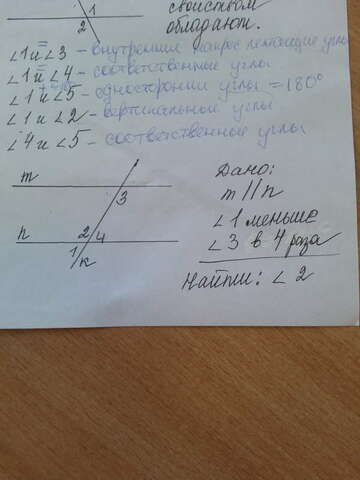 1
2
свойством
обладают.
∠1 и ∠3 - внутренние накрест лежащие углы
∠1 и ∠4 - соответственные углы
∠1 и ∠5 - односторонние углы = 180°
∠1 и ∠2 - вертикальные углы
∠4 и ∠5 - соответственные углы
m
3
n
2
4
1
к
Дано:
m || n
∠1 меньше
∠3 в 4 раза
Найти: ∠2